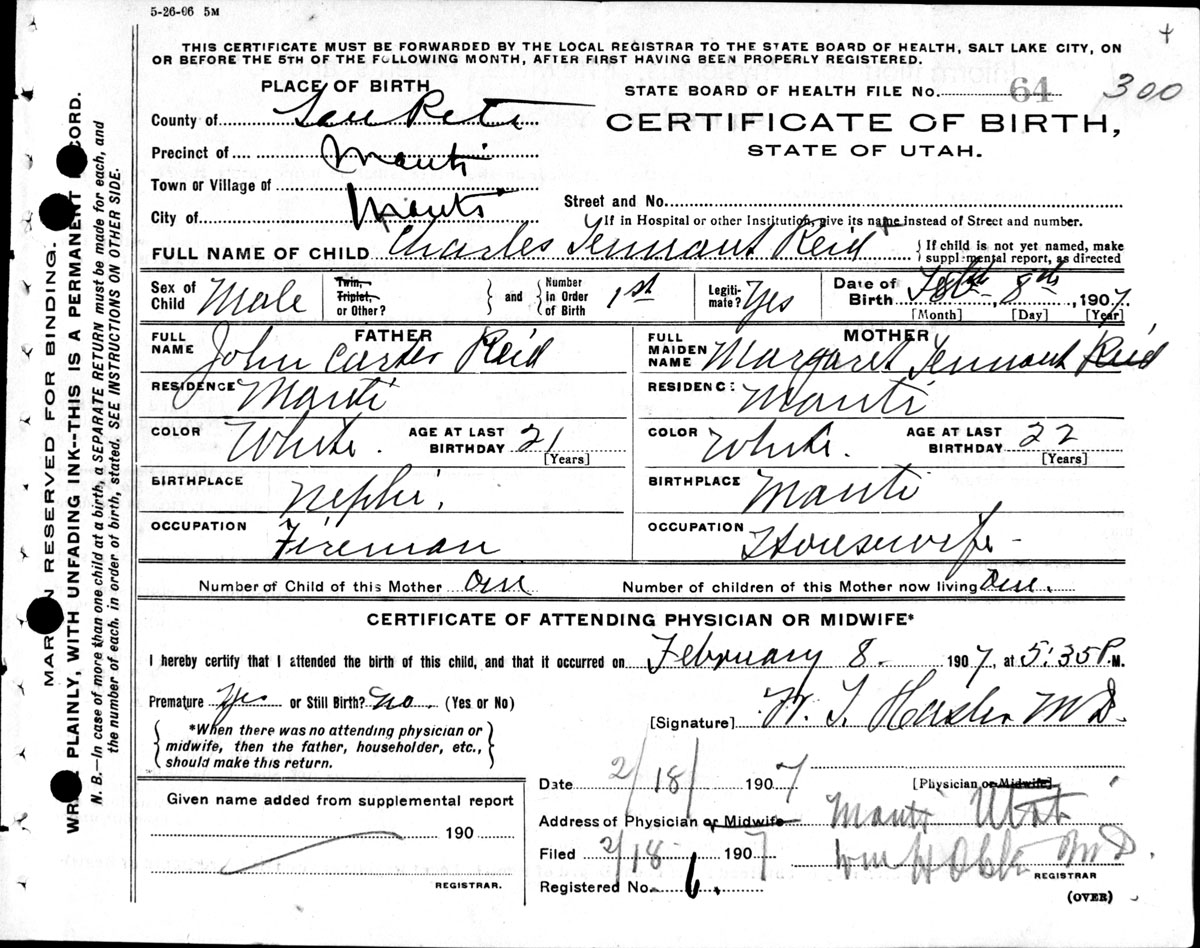 5-26-06 5M
THIS CERTIFICATE MUST BE FORWARDED BY THE LOCAL REGISTRAR TO THE STATE BOARD OF HEALTH, SALT LAKE CITY, ON
OR BEFORE THE 5TH OF THE FOLLOWING MONTH, AFTER FIRST HAVING BEEN PROPERLY REGISTERED.
PLACE OF BIRTH
STATE BOARD OF HEALTH FILE No. 64 300
County of San Pete
CERTIFICATE OF BIRTH,
STATE OF UTAH.
Precinct of Manti
Town or Village of
Street and No.
City of Manti
If in Hospital or other Institution, give its name instead of Street and number.
FULL NAME OF CHILD Charles Tennant Reid
{If child is not yet named, make supplemental report, as directed
Sex of Child Male
Twin, Triplet, or Other? } and { Number in Order of Birth 1st
Legitimate? Yes
Date of Birth Feb 8th, 1907.
[Month] [Day] [Year]
FATHER
FULL NAME John Carter Reid
MOTHER
FULL MAIDEN NAME Margaret Tennant Reid
RESIDENCE Manti
RESIDENCE Manti
COLOR White. AGE AT LAST BIRTHDAY 21 [Years]
COLOR White. AGE AT LAST BIRTHDAY 22 [Years]
BIRTHPLACE Nephi.
BIRTHPLACE Manti
OCCUPATION Fireman
OCCUPATION Housewife-
Number of Child of this Mother one
Number of children of this Mother now living One.
CERTIFICATE OF ATTENDING PHYSICIAN OR MIDWIFE*
I hereby certify that I attended the birth of this child, and that it occurred on February 8- 1907, at 5:35 P.M.
Premature Yes or Still Birth? No. (Yes or No)
[Signature] H. M D.
{*When there was no attending physician or midwife, then the father, householder, etc., should make this return.}
Date 2/18/ 1907
[Physician or Midwife]
Given name added from supplemental report
190
REGISTRAR.
Address of Physician or Midwife Manti Utah
Filed 2/18- 1907 Wm H M D.
REGISTRAR
Registered No. 6.
(OVER)
MARGIN RESERVED FOR BINDING.
WRITE PLAINLY, WITH UNFADING INK--THIS IS A PERMANENT RECORD.
N. B.—In case of more than one child at a birth, a SEPARATE RETURN must be made for each, and
the number of each, in order of birth, stated. SEE INSTRUCTIONS ON OTHER SIDE.